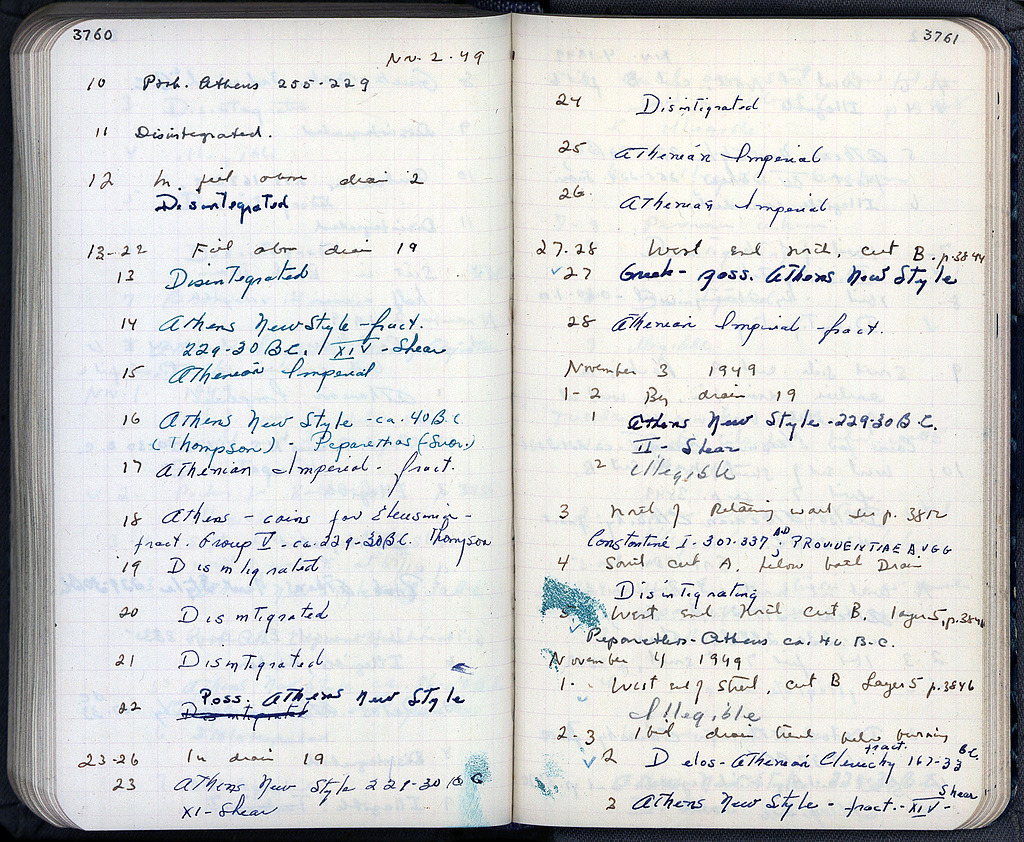 3760
Nov. 2. 49
10 Prob. Athens 255-229
11 Disintegrated.
12 In fill above drain 2
Disintegrated
13-22 Fill above drain 19
13 Disintegrated
14 Athens New Style - fract.
229-30 B.C. XIV - Shear
15 Athenian Imperial
16 Athens New Style - ca. 40 B.C.
(Thompson) - Peparethos (Svor.)
17 Athenian Imperial - fract.
18 Athens - coins for Eleusinia -
fract. Group V - ca. 229-30 B.C. Thompson
19 Disintegrated
20 Disintegrated
21 Disintegrated
22 Poss. Athens New Style
Disintegrated
23-26 In drain 19
23 Athens New Style 229-30 B C
XI - Shear
3761
24 Disintegrated
25 Athenian Imperial
26 Athenian Imperial
27-28 West end north, cut B. p. 3844
27 Greek - poss. Athens New Style
28 Athenian Imperial - fract.
November 3 1949
1-2 By drain 19
1 Athens New Style - 229-30 B.C.
II - Shear
2 illegible
3 North of Retaining wall see p. 3812
Constantine I - 307-337 AD; PROVIDENTIAE AVGG
4 South cut A, below
Drain
Disintegrating
5 West end North cut B. layer 5, p. 3846
Peparethos - Athens ca. 40 B.C.
November 4 1949
1. West end of street, cut B Layer 5 p. 3846
Illegible
2-3 drain
2 Delos - Athenian Cleruchy fract. 167-33 B.C.
3 Athens New Style - fract. - XIV - Shear